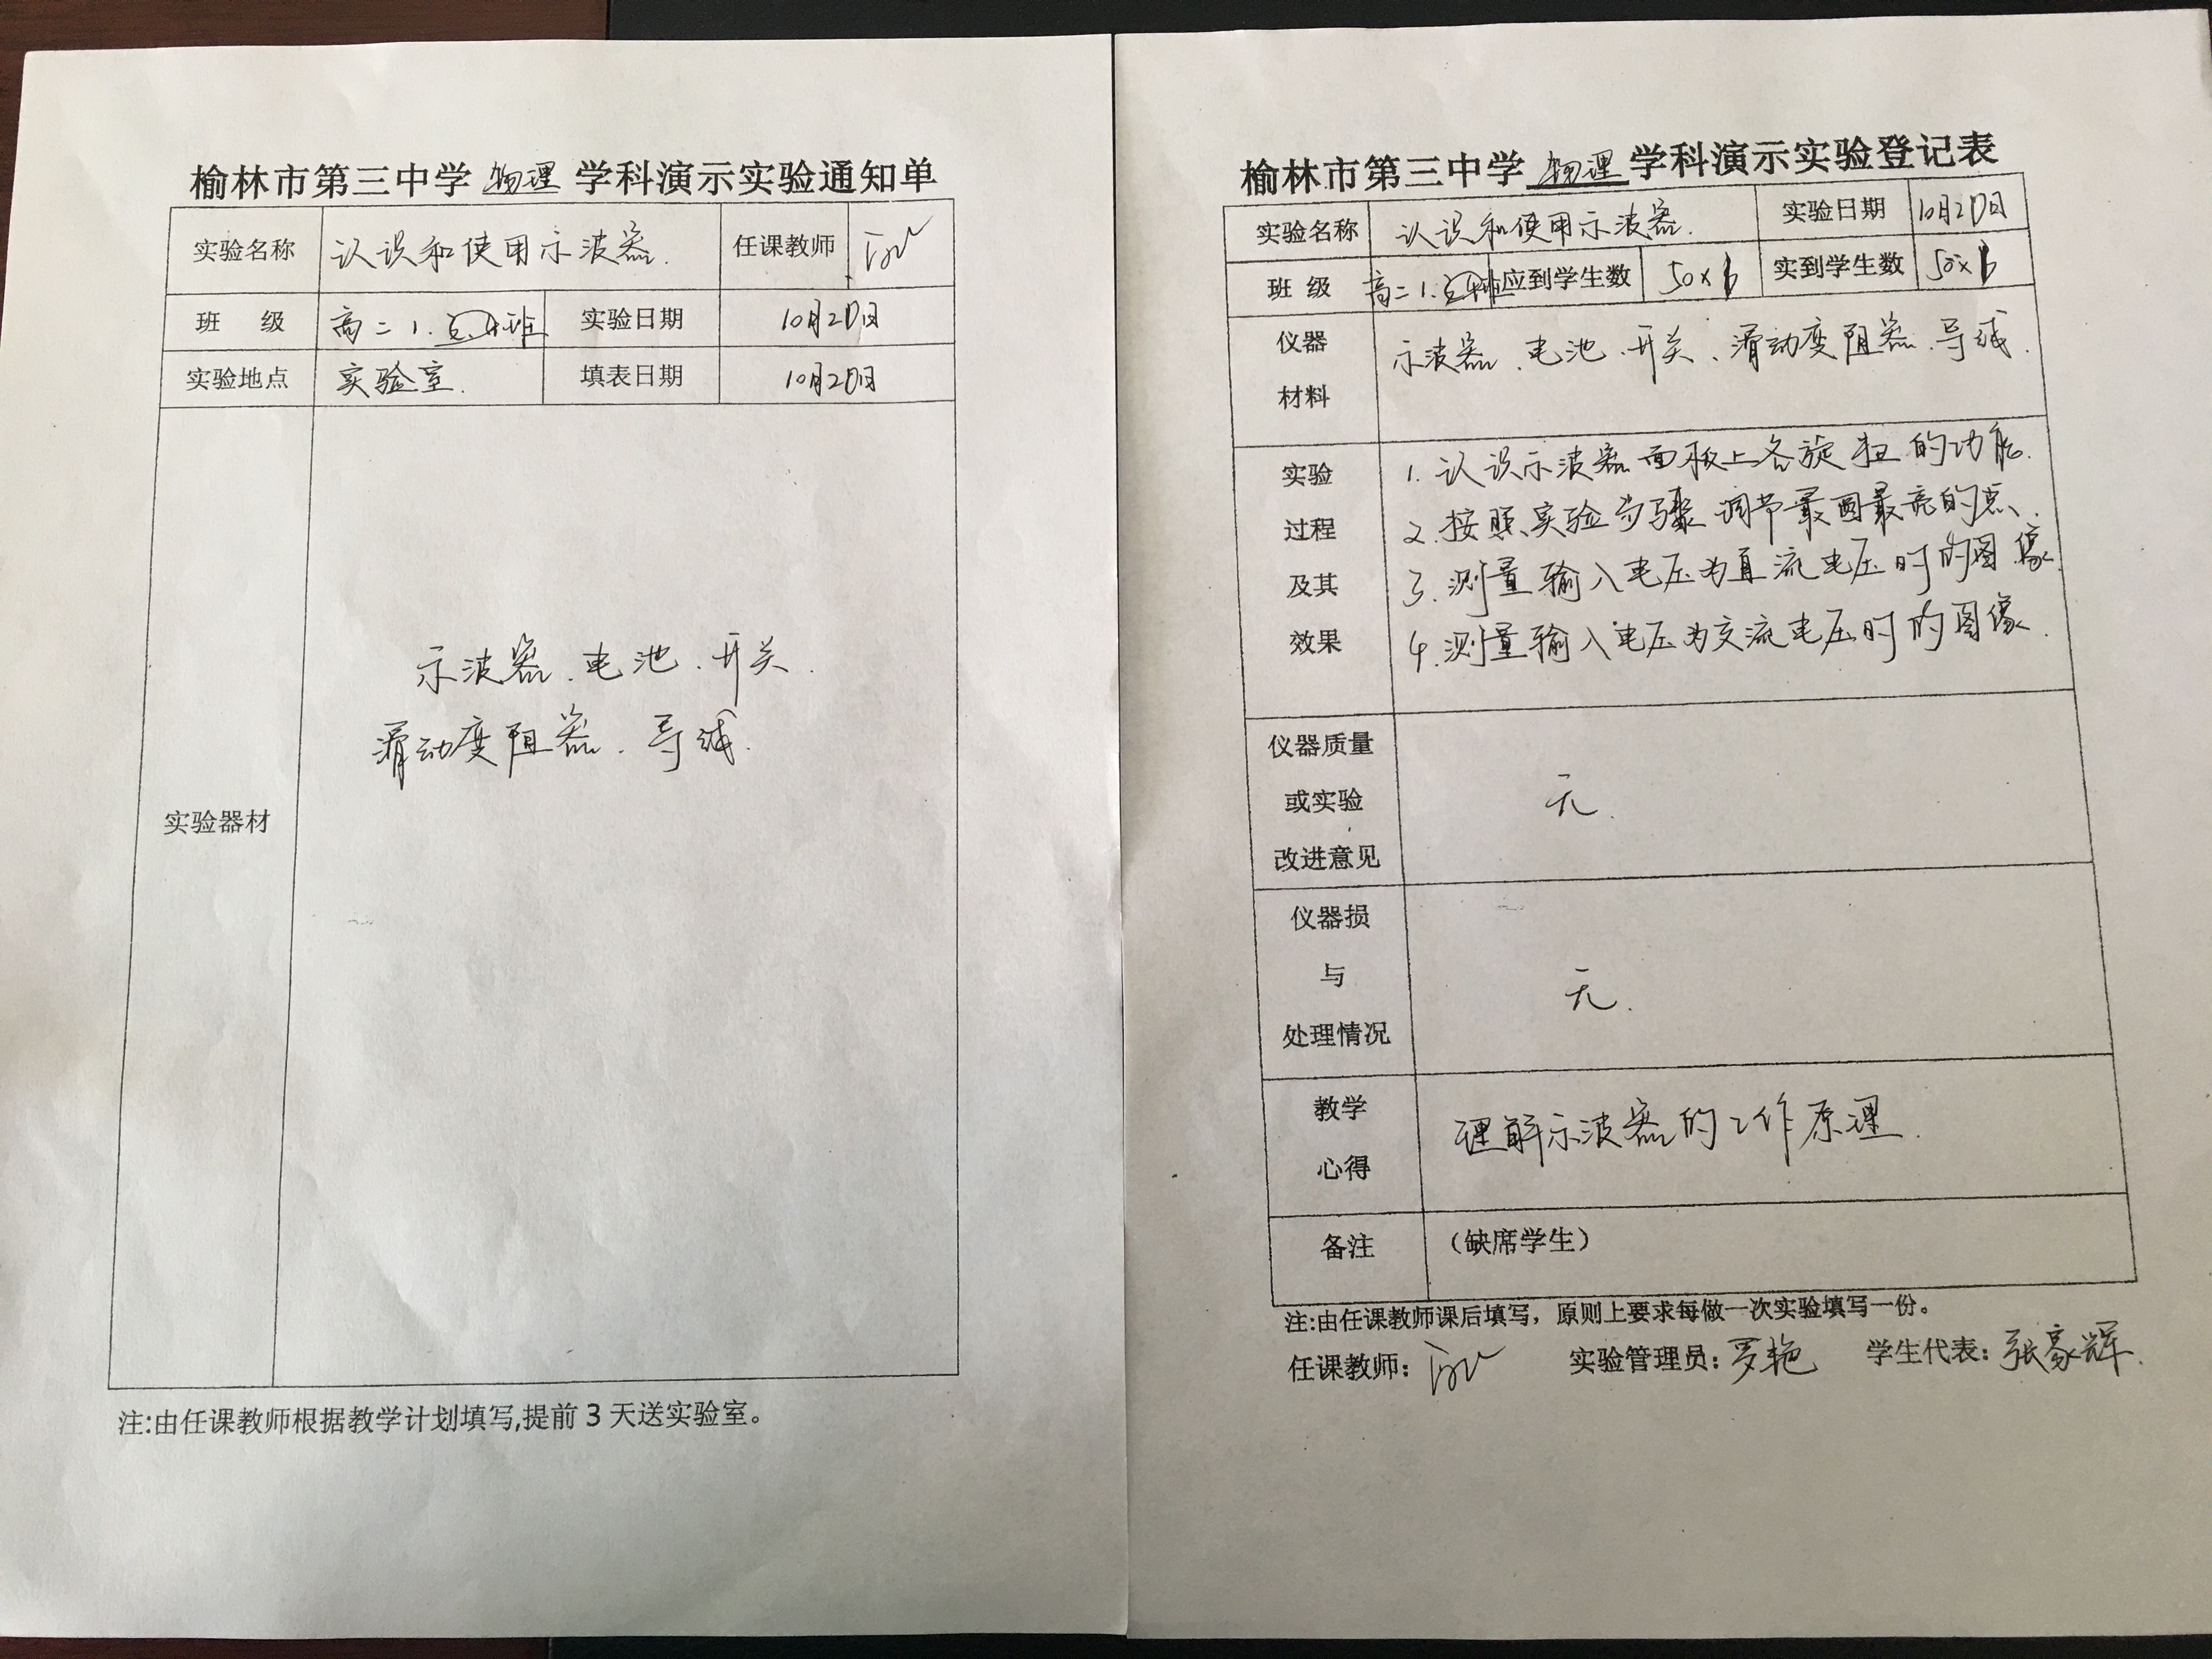 榆林市第三中学 物理 学科演示实验通知单
实验名称 认识和使用示波器. 任课教师
班 级 高二1. 班 实验日期 10月20日
实验地点 实验室. 填表日期 10月20日
实验器材
示波器、电池、开关.
滑动变阻器、导线.
注:由任课教师根据教学计划填写,提前3天送实验室。
榆林市第三中学 物理 学科演示实验登记表
实验名称 认识和使用示波器. 实验日期 10月20日
班 级 高二1. 应到学生数 50×6 实到学生数 50×6
仪器材料 示波器、电池、开关、滑动变阻器、导线.
实验过程及其效果
1.认识示波器面板上各旋扭的功能.
2.按照实验步骤调节最圆最亮的点、
3.测量输入电压为直流电压时的图像.
4.测量输入电压为交流电压时的图像.
仪器质量或实验改进意见 无.
仪器损与处理情况 无.
教学心得 理解示波器的工作原理.
备注 (缺席学生)
注:由任课教师课后填写，原则上要求每做一次实验填写一份。
任课教师: 实验管理员:罗艳 学生代表:张家辉.